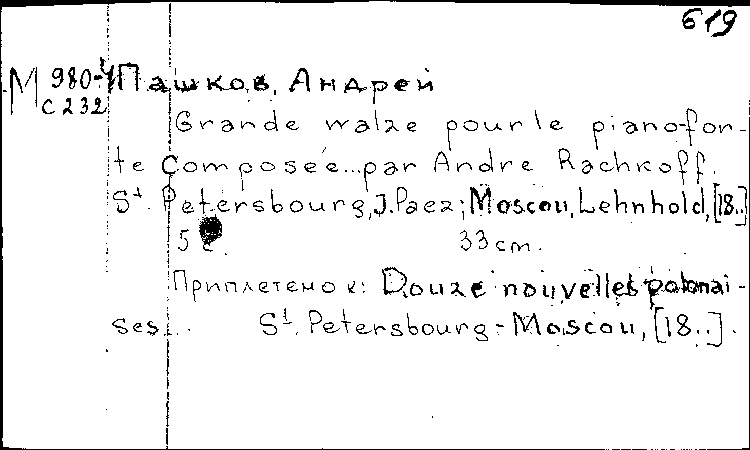 619
М 980-4 Пашков, Андрей
С 232
Grande walze pour le pianofor-
te composée...par Andre Rachkoff.
St. Petersbourg, J. Paez; Moscou, Lehnhold, [18..]
5 с. 33 cm.
Приплетено к: Douze nouvelles polonai-
ses... St. Petersbourg - Moscou, [18..].